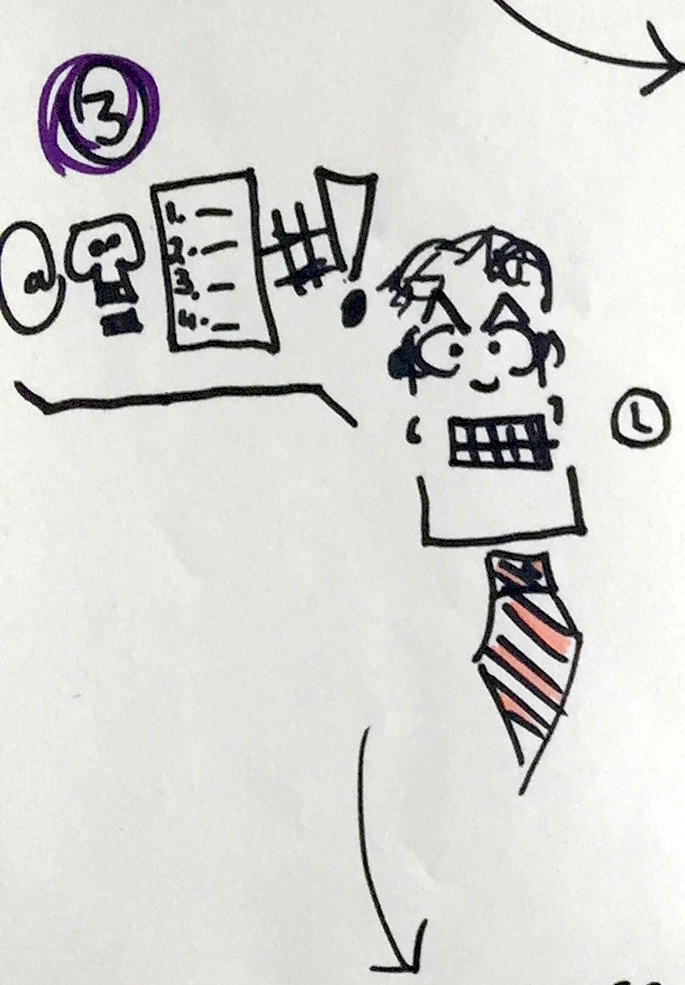 3
@
1.
2.
3.
4.
#!
L